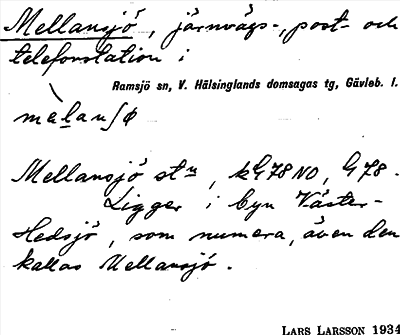 Mellansjö, järnvägs-, post- och
telefonstation i
Ramsjö sn, V. Hälsinglands domsagas tg, Gävleb. l.
mèlanʃø
Mellansjö stn, kG78NO, G78.
Ligger i byn Väster-
Hedsjö, som numera, även den
kallas Mellansjö.
LARS LARSSON 1934